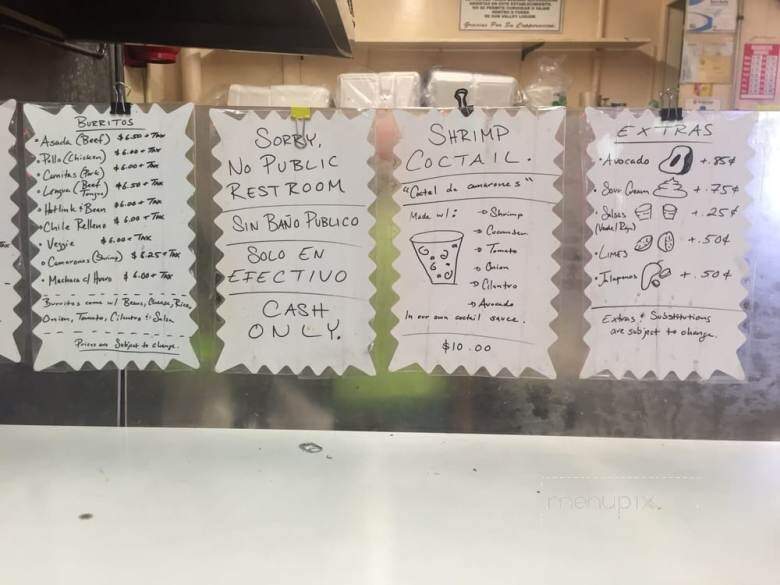 NO SE PERMITE CONSUMIR O DEJAR
DENTRO O FUERA
DE SUN VALLEY LIQUOR
Gracias Por Su Cooperacion
BURRITOS
• Asada (Beef) $6.50 + Tax
• Pollo (Chicken) $6.00 + Tax
• Carnitas (Pork) $6.00 + Tax
• Lengua (Beef Tongue) $6.50 + Tax
• Hotlink & Bean $6.00 + Tax
• Chile Relleno $6.00 + Tax
• Veggie $6.00 + Tax
• Camarones (Shrimp) $8.25 + Tax
• Machaca c/ Huevo $6.00 + Tax
Burritos come w/ Beans, Cheese, Rice,
Onion, Tomato, Cilantro & Salsa
Prices are Subject to change.
SORRY,
NO PUBLIC
RESTROOM
SIN BAÑO PUBLICO
SOLO EN
EFECTIVO
CASH
ONLY.
SHRIMP
COCTAIL.
"Coctel de camarones"
Made w/:
→ Shrimp
→ Cucumber
→ Tomato
→ Onion
→ Cilantro
→ Avocado
In our own coctail sauce.
$10.00
EXTRAS
• Avocado +.85¢
• Sour Cream +.75¢
• Salsas +.25¢
• LIMES +.50¢
• Jalapenos +.50¢
Extras & Substitutions
are subject to change.
menupix